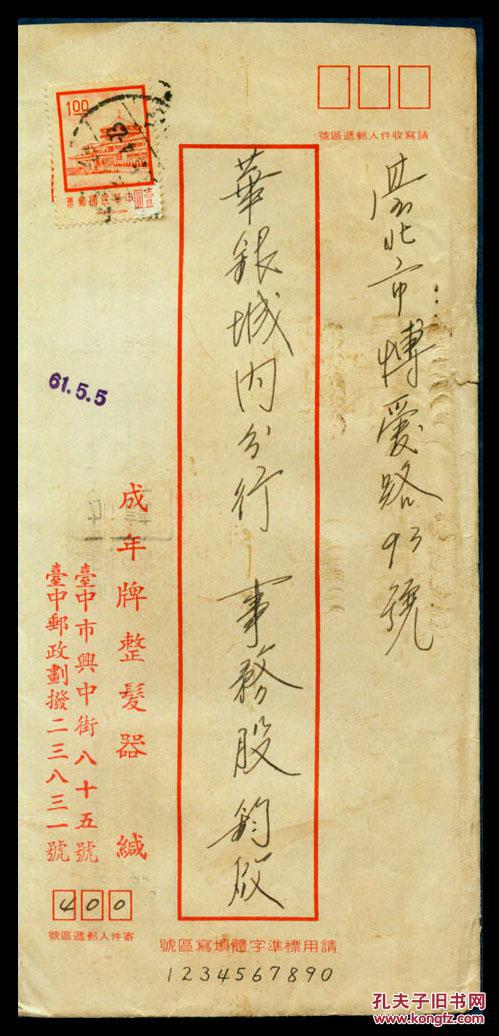 請寫收件人郵遞區號
臺北市博愛路93號
華銀城內分行 事務股鈞啟
1.00
中華民國郵票
壹圓
61.5.5
成年牌整髮器 緘
臺中市興中街八十五號
臺中郵政劃撥二三八三一號
400
寄件人郵遞區號
請用標準字體填寫區號
1234567890
孔夫子旧书网